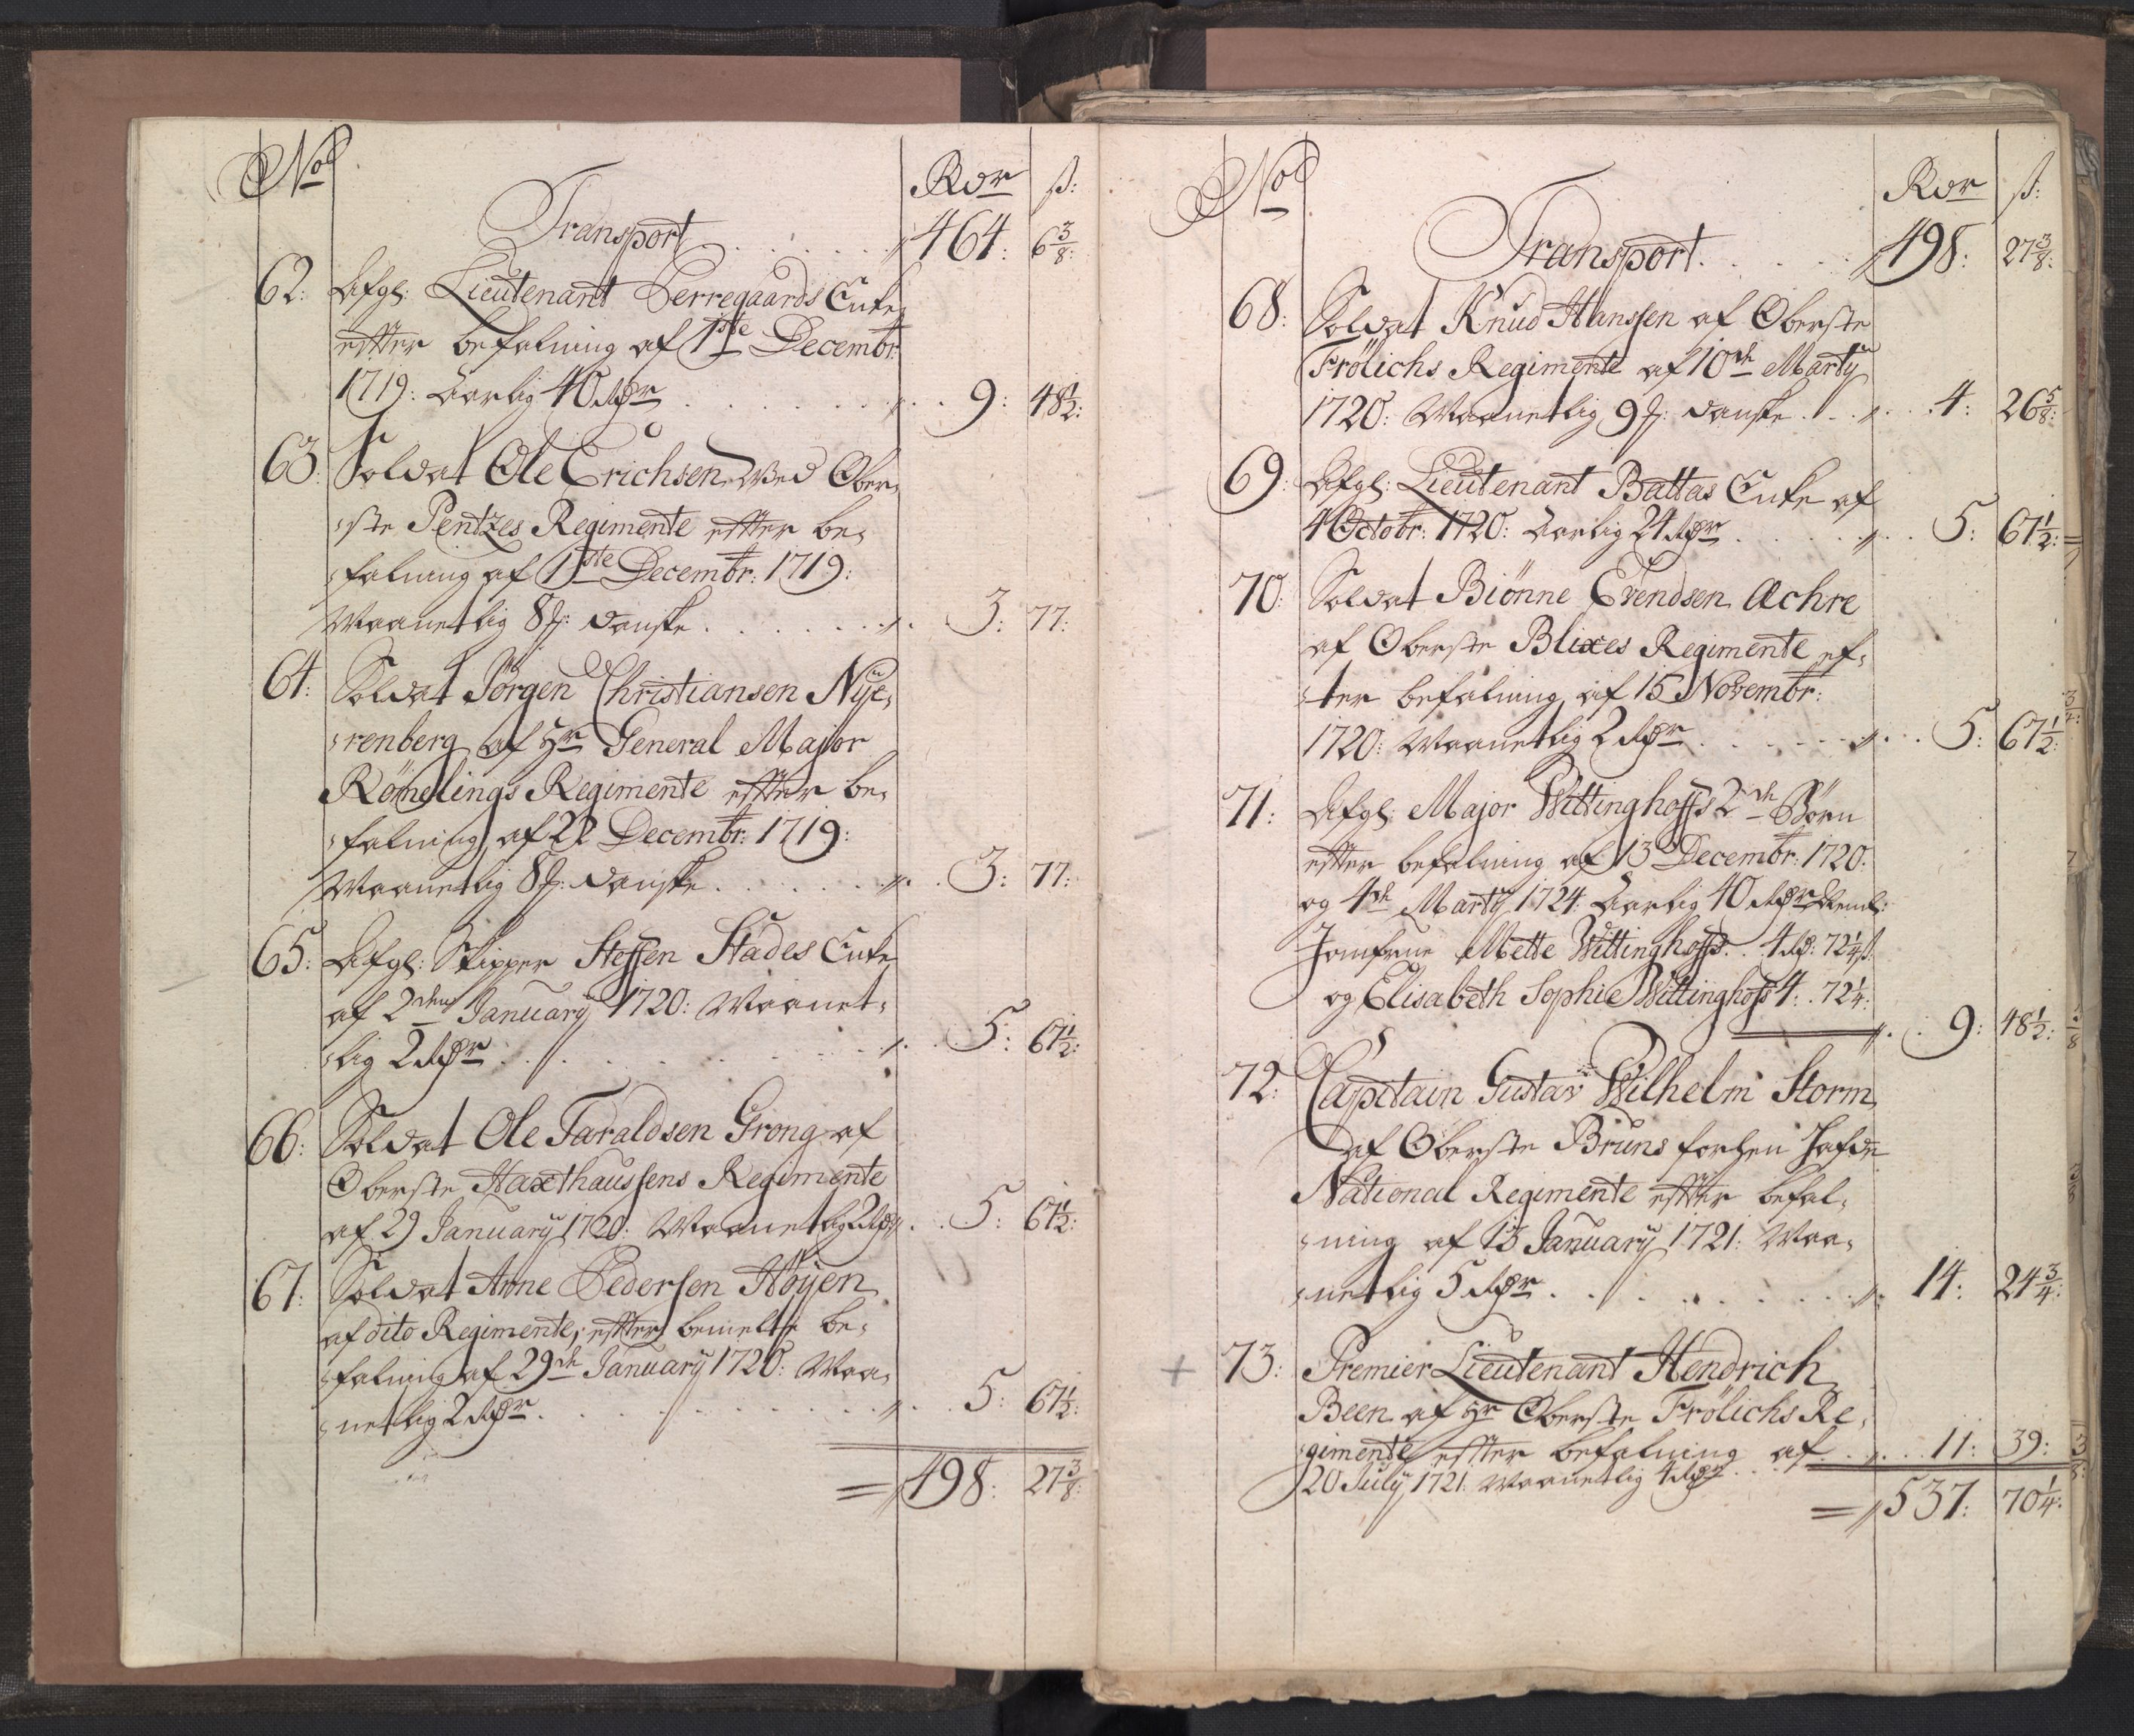 No
Rdr ß:
Transport . . . . . . . 464: 6 3/8:
62: Afgl: Lieutenant Perregaards Enke
effter befalning af 1ste Decembr:
1719: Aarlig 40 Rdr . . . . . . 9: 48 1/2:
63: Soldat Ole Erichsen Ved Ober-
-ste Pentzes Regimente effter be-
-falning af 1ste Decembr: 1719:
Maanetlig 8 ß: danske . . . . . . 3: 77:
64: Soldat Jörgen Christiansen Nye-
-renberg af Hr General Major
Römelings Regimente effter be-
-falning af 22 Decembr: 1719:
Maanetlig 8 ß: danske . . . . . . 3: 77:
65: Afgl: Skipper Steffen Stades Enke
af 2den January 1720: Maanet-
-lig 2 Rdr . . . . . . 5: 67 1/2:
66: Soldat Ole Taraldsen Grong af
Oberste Haxthaussens Regimente
af 29 January 1720: Maanetlig 2 Rdr . . 5: 67 1/2:
67: Soldat Arne Pedersen Höyen
af dito Regimente, effter bemelte be-
-falning af 29de January 1720: Maa-
-netlig 2 Rdr . . . . . . 5: 67 1/2:
= 498: 27 3/8:
No
Rdr ß:
Transport . . . . . 498: 27 3/8:
68: Soldat Knud Hanssen af Oberste
Frölichs Regimente af 10de Marty
1720: Maanetlig 9 ß: danske . . . 4: 26 5/8:
69: Afgl: Lieutenant Battas Enke af
4 Octobr: 1720: Aarlig 24 Rdr . . . . . 5: 67 1/2:
70: Soldat Biönne Evendsen Achre
af Oberste Blixes Regimente ef-
-ter befalning af 15 Novembr:
1720: Maanetlig 2 Rdr . . . . . . 5: 67 1/2:
71: Afgl: Major Wittinghoffs 2de Börn
effter befalning af 13 Decembr: 1720:
og 4de Marty 1724: Aarlig 40 Rdr Neml:
Jomfrue Mette Wittinghoffs . . 4 Rd: 72 1/4 ß
og Elisabeth Sophie Wittinghofs 4: . 72 1/4:
9: 48 1/2:
72: Capitain Gustav Wilhelm Storm
af Oberste Bruns forhen hafde
National Regimente effter befal-
-ning af 13 January 1721: Maa-
-netlig 5 Rdr . . . . . . 14: 24 3/4:
+ 73: Premier Lieutenant Hendrich
Been af Hr Oberste Frölichs Re-
-gimente effter befalning af . . . 11: 39:
20 July 1721: Maanetlig 4 Rdr
= 537: 70 1/4: